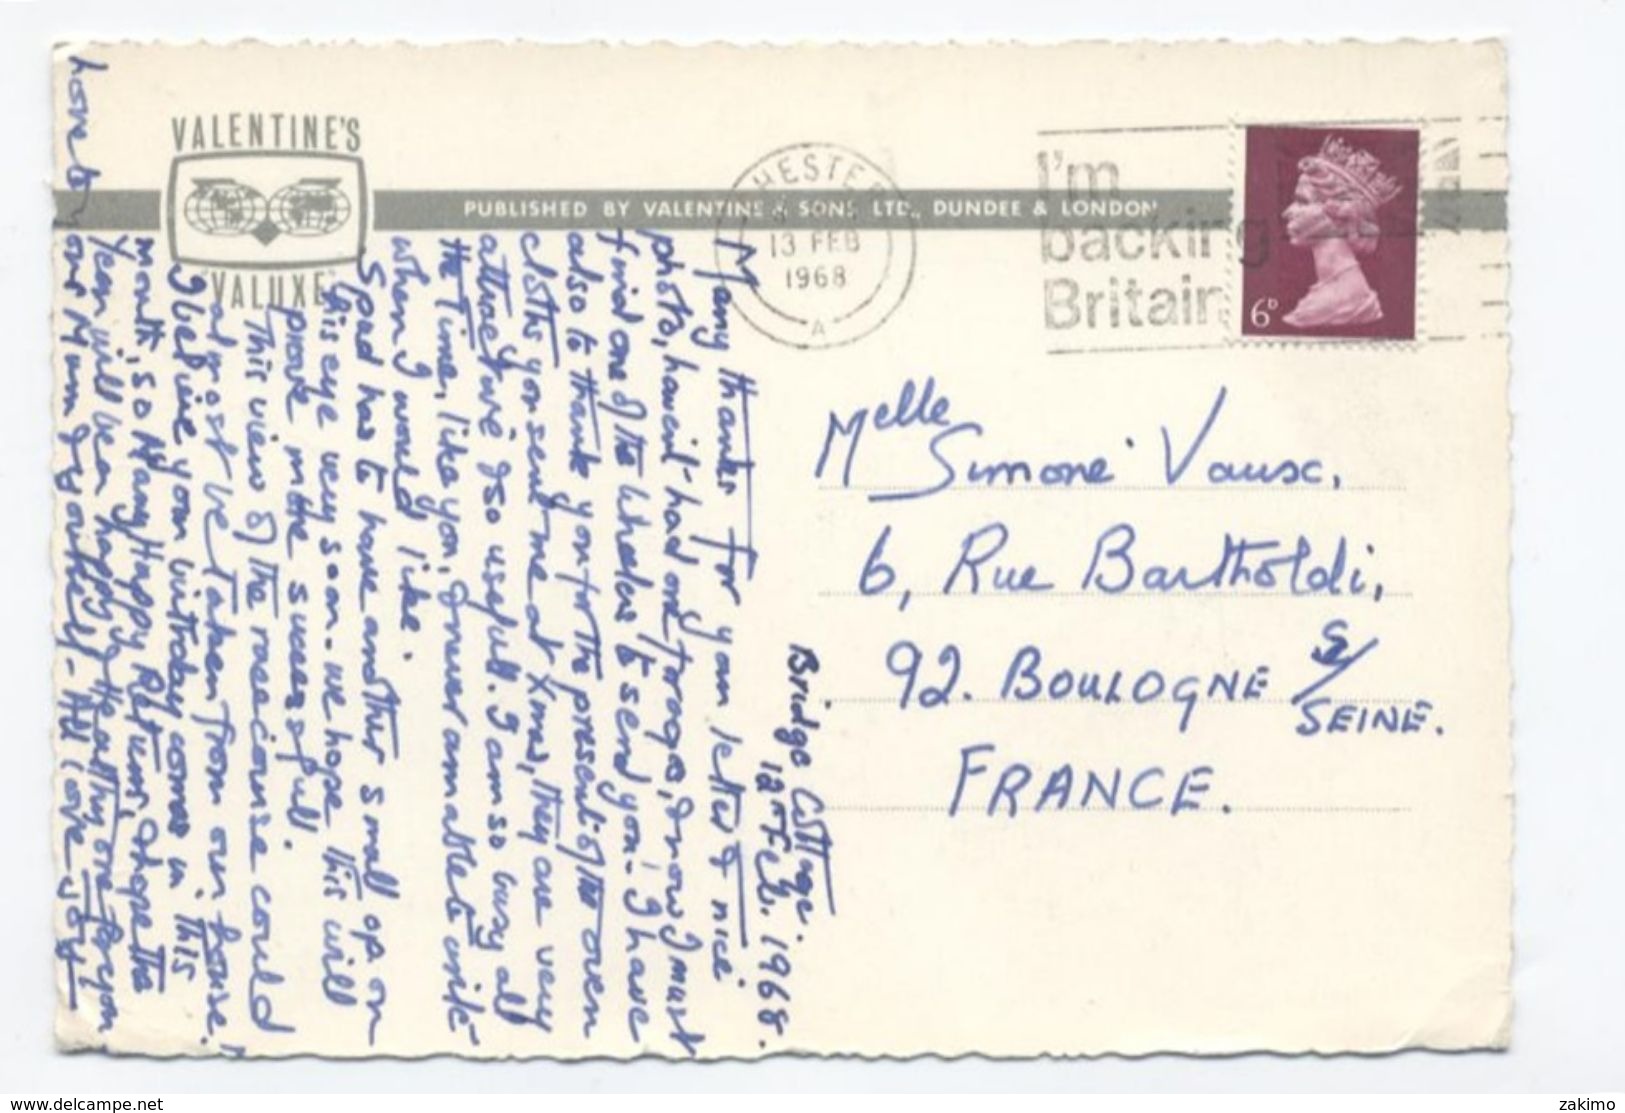 VALENTINE'S
"VALUXE"
PUBLISHED BY VALENTINE & SONS, LTD., DUNDEE & LONDON
CHESTER
13 FEB
1968
A
I'm
backing
Britain
6D
Melle Simone Vaux,
6, Rue Bartholdi,
92. BOULOGNE S/
SEINE.
FRANCE.
Bridge Cottage.
12th Feb. 1968.
Many thanks for your letter & nice
photo, haven't had one for ages, & now I must
find one of the wheelers to send you - I have
also to thank you for the present of the oven
cloths you sent me at Xmas, they are very
attractive & so useful. I am so busy all
the time, like you, & never am able to write
when I would like.
Spad has to have another small op on
his eye very soon - we hope this will
prove in the successful.
This view of the racecourse could
almost be taken from our house.
I believe your birthday comes in this
month, so Many Happy Returns, & hope the
Year will be a happy & Healthy one for you
our Mum & yourself - All love Joy
love to
delcampe.net
zakimo